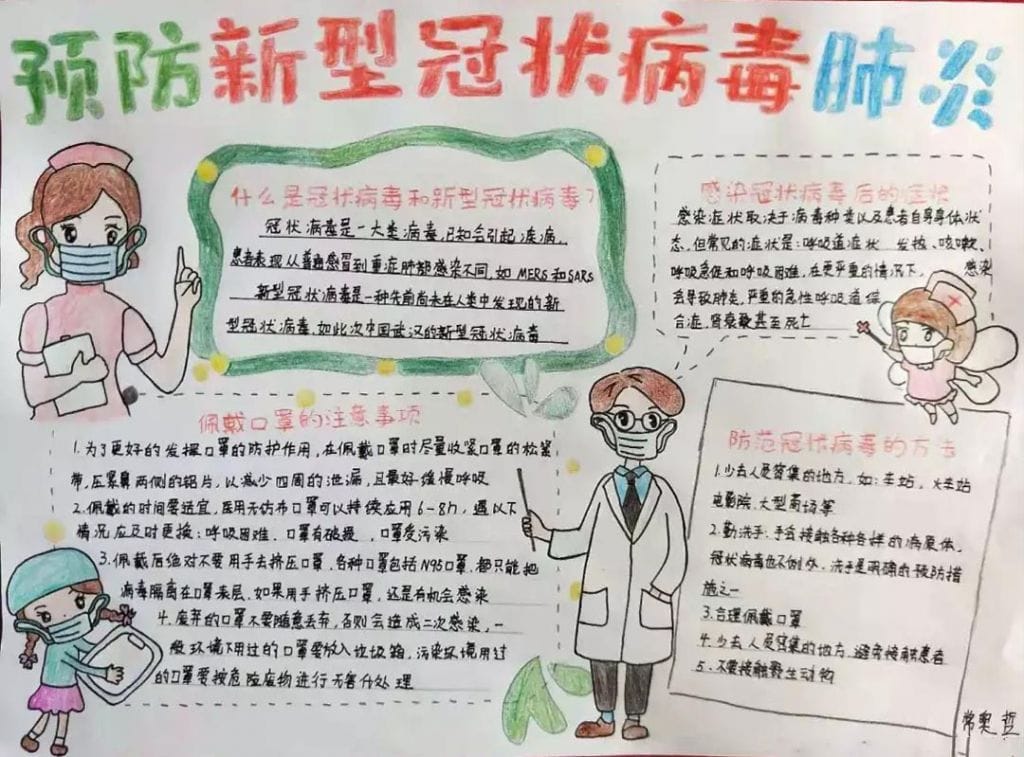 预防新型冠状病毒肺炎
什么是冠状病毒和新型冠状病毒?
冠状病毒是一大类病毒,已知会引起疾病.
患者表现从普通感冒到重症肺部感染不同,如 MERS 和SARS
新型冠状病毒是一种先前尚未在人类中发现的新
型冠状病毒.如此次中国武汉的新型冠状病毒
感染冠状病毒后的症状
感染症状取决于病毒种类以及患者自身身体状
态,但常见的症状是:呼吸道症状 发热、咳嗽、
呼吸急促和呼吸困难,在更严重的情况下, 感染
会导致肺炎,严重的急性呼吸道综
合症,肾衰竭甚至死亡
佩戴口罩的注意事项
1.为了更好的发挥口罩的防护作用,在佩戴口罩时尽量收紧口罩的松紧
带,压紧鼻两侧的铝片,以减少四周的泄漏,且最好缓慢呼吸
2.佩戴的时间要适宜,医用无纺布口罩可以持续应用6-8h,遇以下
情况应及时更换:呼吸困难、口罩有破损、口罩受污染
3.佩戴后绝对不要用手去挤压口罩,各种口罩包括N95口罩,都只能把
病毒隔离在口罩表层.如果用手挤压口罩,还是有机会感染
4.废弃的口罩不要随意丢弃,否则会造成二次感染,一
般环境下用过的口罩要放入垃圾箱,污染环境用过
的口罩要按危险废物进行无害什处理
防范冠状病毒的方法
1.少去人员密集的地方,如:车站,火车站
电影院.大型商场等
2.勤洗手:手会接触各种各样的病原体,
冠状病毒也不例外.洗手是明确的预防措
施之一
3.合理佩戴口罩
4.少去人员密集的地方,避免接触患者
5.不要接触野生动物
常奥哲